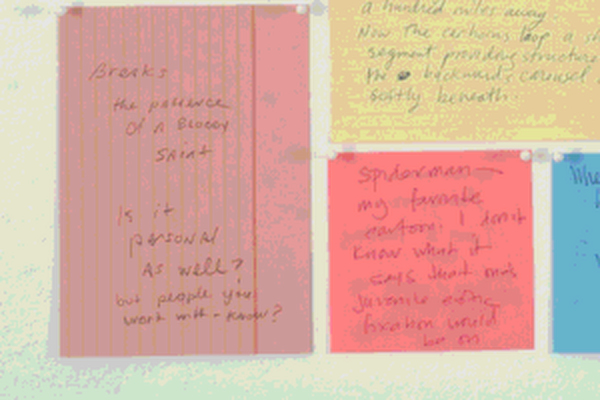 Breaks
the patience
of a Bloody
saint
Is it
personal
As well?
but people you
work with - know?
a hundred miles away.
Now the cartoons loop a
segment providing structure
the backwards carousel
softly beneath.
Spiderman -
my favorite
cartoon. I don't
know what it
says that one's
juvenile erotic
fixation would
be on